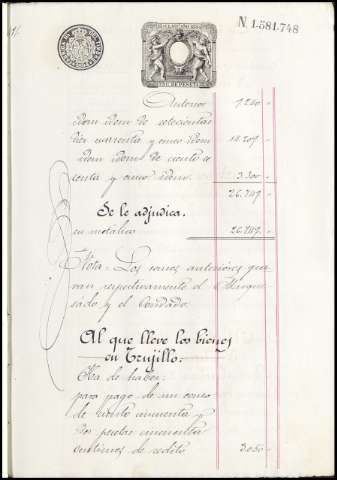 N. 1.581.748
Anterior 9.240
Idem idem de setecientas
cuarenta y cinco idem 14.209
Idem idem de ciento se
senta y cinco idem 3.300
26.749
Se le adjudica.
en metálico 26.749
Nota: Los censos anteriores gra
van respectivamente el Marque
sado y el Condado.
Al que lleve los bienes
en Trujillo.
Ha de haber:
para pago de un censo
de ciento cincuenta y
dos pesetas cincuenta
centimos de redito 3.050